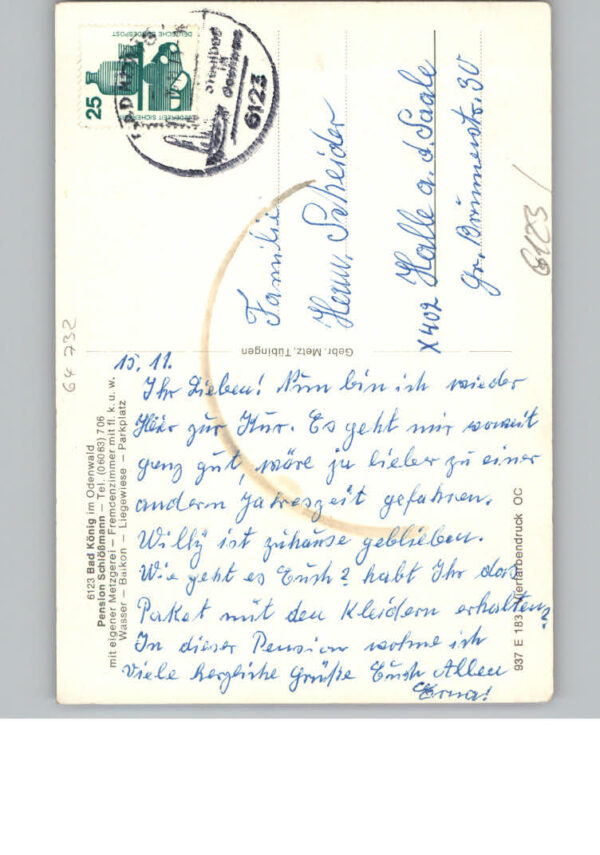 25
DEUTSCHE BUNDESPOST
6123
Familie
Herm. Scheider
X402 Halle a. d. Saale
Gr. Brunnenstr. 30
6123/
64 732
Gebr. Metz, Tübingen
6123 Bad König im Odenwald
Pension Schlößmann – Tel. (06063) 706
mit eigener Metzgerei – Fremdenzimmer mit fl. k. u. w.
Wasser – Balkon – Liegewiese – Parkplatz
15. 11.
Ihr Lieben! Nun bin ich wieder
Hier zur Kur. Es geht mir soweit
ganz gut, wäre ja lieber zu einer
andern Jahreszeit gefahren.
Willy ist zuhause geblieben.
Wie geht es Euch? habt Ihr das
Paket mit den Kleidern erhalten?
In dieser Pension wohne ich
Viele herzliche Grüße Euch Allen
Erna!
937 E 183 Vierfarbendruck OC